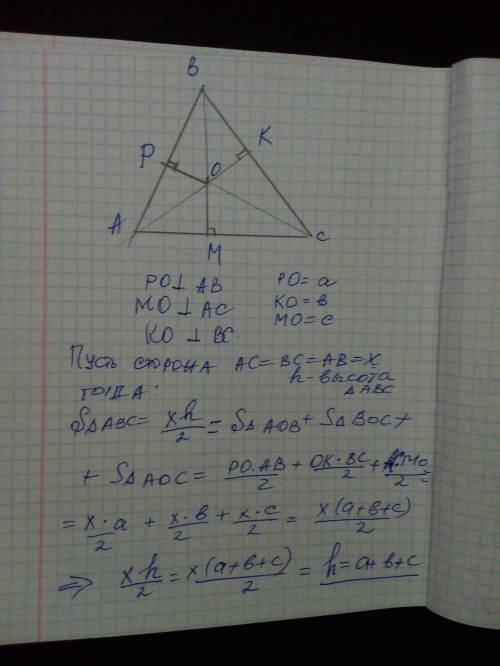 B
K
P
O
A
M
C
PO ⊥ AB PO = a
MO ⊥ AC KO = в
KO ⊥ BC MO = c
Пусть сторона AC = BC = AB = x
h - высота
тогда: ΔABC
SΔABC = xh/2 = SΔAOB + SΔBOC +
+ SΔAOC = PO·AB/2 + OK·BC/2 + ·MO/2 =
= x·a/2 + x·в/2 + x·c/2 = x(a+в+c)/2
⇒ xh/2 = x(a+в+c)/2 = h = a+в+c